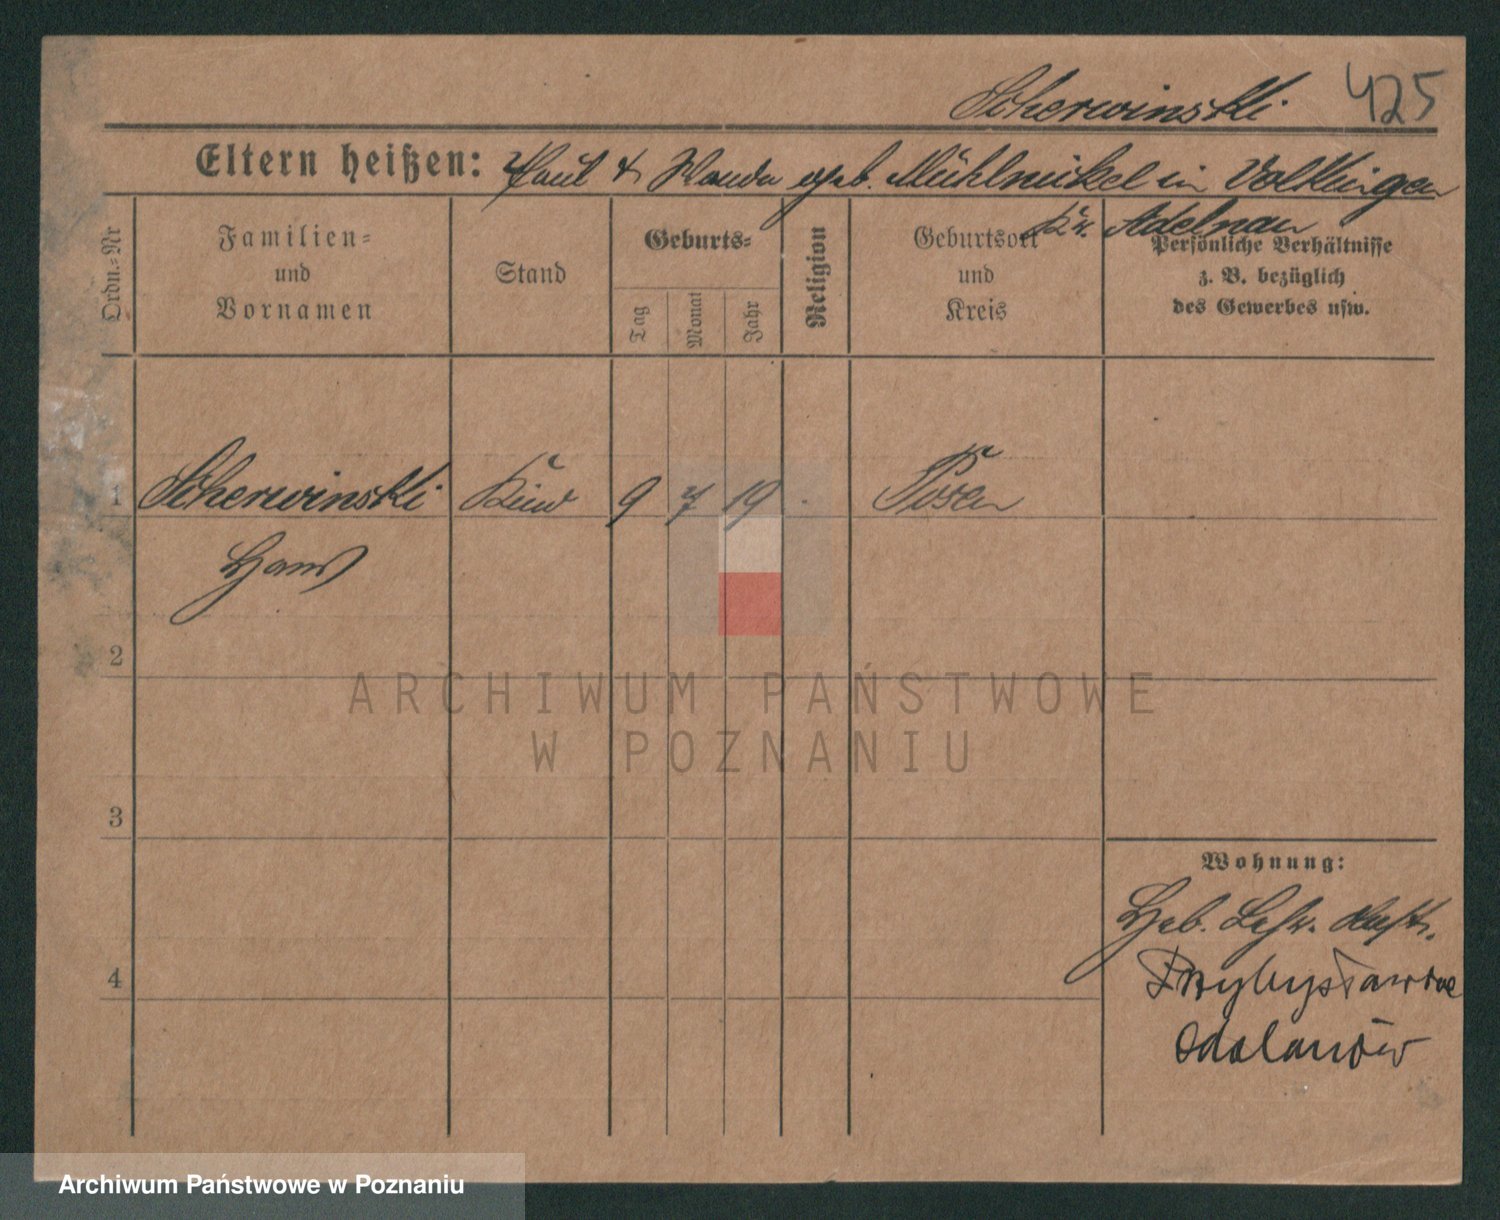 Scherwinski 425
Eltern heißen: Paul & Wanda geb. Mühlnickel in Volklingen
Kr. Adelnau
Ordn.=Nr
Familien=
und
Vornamen
Stand
Geburts=
Tag
Monat
Jahr
Religion
Geburtsort
und
Kreis
Persönliche Verhältnisse
z. B. bezüglich
des Gewerbes usw.
1 Scherwinski Kind 9 7 19 Posen
Hans
2
3
4
Wohnung:
Heb. Lehr.
Przybysławice
Odolanów
ARCHIWUM PAŃSTWOWE
W POZNANIU
Archiwum Państwowe w Poznaniu